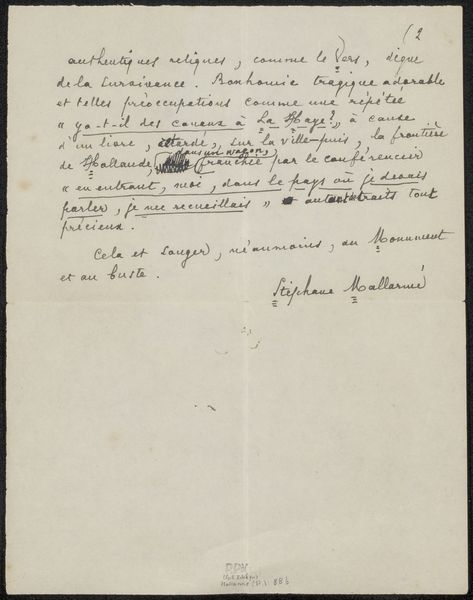 (2
authentiques reliques, comme le Vers, digne
de la Survivance. Bonhomie tragique adorable
et telles préoccupations comme une répétée
« ya-t-il des canaux à La Haye? » à cause
d'un livre, attardé, sur la ville—puis, la frontière
dans un wagon,
de Hollande, franchie par le conférencier
« en entrant, moi, dans le pays où je devais
parler, je me recueillais » autant traits tout
précieux.
Cela et Songer, néanmoins, au Monument
et au buste.
Stéphane Mallarmé